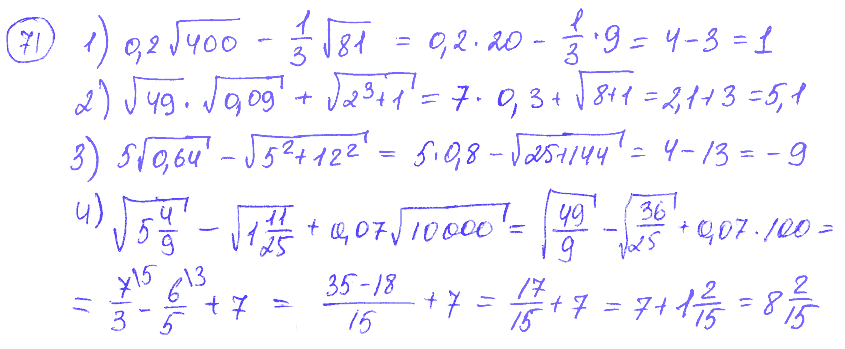 71 1) 0,2√400 - 1/3 √81 = 0,2·20 - 1/3 · 9 = 4-3 = 1
2) √49 · √0,09 + √(2³+1) = 7 · 0,3 + √(8+1) = 2,1+3 = 5,1
3) 5√0,64 - √(5²+12²) = 5·0,8 - √(25+144) = 4-13 = -9
4) √(5 4/9) - √(1 11/25) + 0,07√10000 = √(49/9) - √(36/25) + 0,07·100 =
= 7\5/3 - 6\3/5 + 7 = (35-18)/15 + 7 = 17/15 + 7 = 7+1 2/15 = 8 2/15